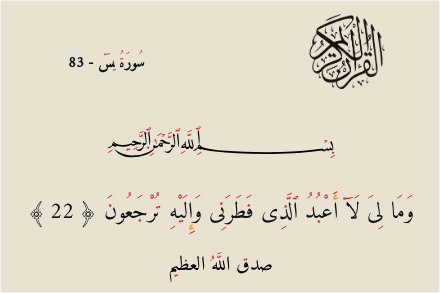 القرآن الكريم
سُورَةُ يسٓ - 83
بِسْمِ ٱللَّهِ ٱلرَّحْمَٰنِ ٱلرَّحِيمِ
وَمَا لِىَ لَآ أَعْبُدُ ٱلَّذِى فَطَرَنِى وَإِلَيْهِ تُرْجَعُونَ ﴿ 22 ﴾
صدق اللهُ العظيم